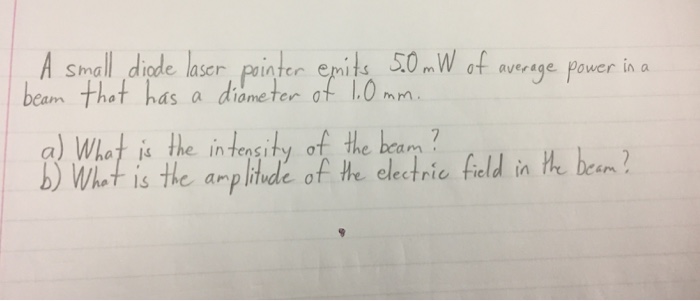 A small diode laser pointer emits 5.0 mW of average power in a
beam that has a diameter of 1.0 mm.
a) What is the intensity of the beam?
b) What is the amplitude of the electric field in the beam?